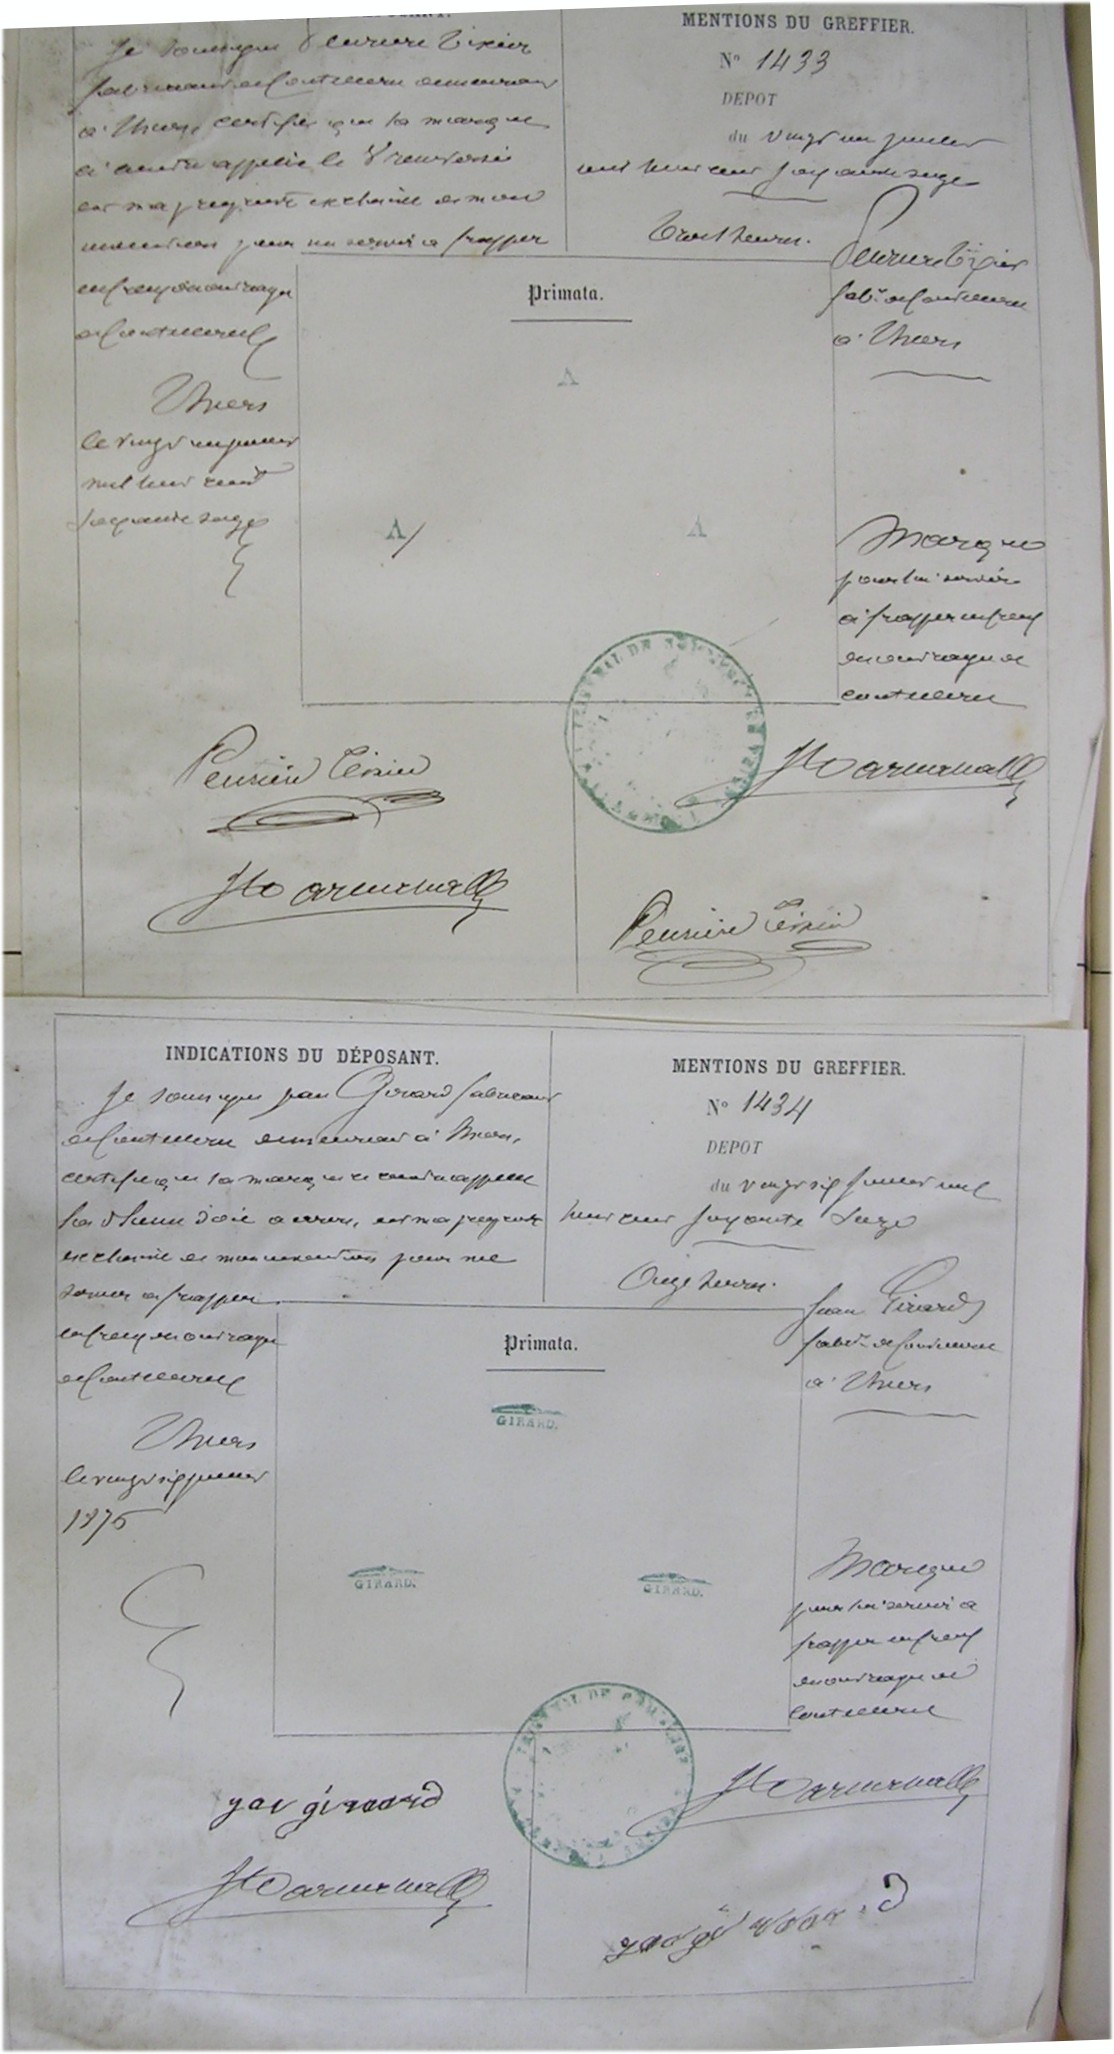 MENTIONS DU GREFFIER.
Je soussigné Tixier
fabricant de Coutellerie demeurant
à Thiers, certifie que la marque
ci contre appelée le V renversé
est ma propriété exclusive et mon
invention pour me servir à frapper
en creux des ouvrages
de Coutellerie
Thiers
le vingt un janvier
mil huit cent
soixante seize
N° 1433
DEPOT
du vingt un janvier
mil huit cent soixante seize
Trois heures.
Tixier
fabt de Coutellerie
à Thiers
Primata.
Λ
Λ
Λ
Marque
pour lui servir
à frapper en creux
des ouvrages de
coutellerie
TRIBUNAL DE COMMERCE
INDICATIONS DU DÉPOSANT.
Je soussigné Jean Girard fabricant
de Coutellerie demeurant à Thiers,
certifie que la marque ci contre appelée
exclusive et mon invention pour me
servir à frapper
en creux des ouvrages
de Coutellerie
Thiers
le vingt six janvier
1876
MENTIONS DU GREFFIER.
N° 1434
DEPOT
du vingt six janvier mil
huit cent soixante seize
Onze heures.
Jean Girard
fabt de Coutellerie
à Thiers
Primata.
GIRARD.
GIRARD.
GIRARD.
Marque
pour lui servir à
frapper en creux
des ouvrages de
Coutellerie
TRIBUNAL DE COMMERCE
girard